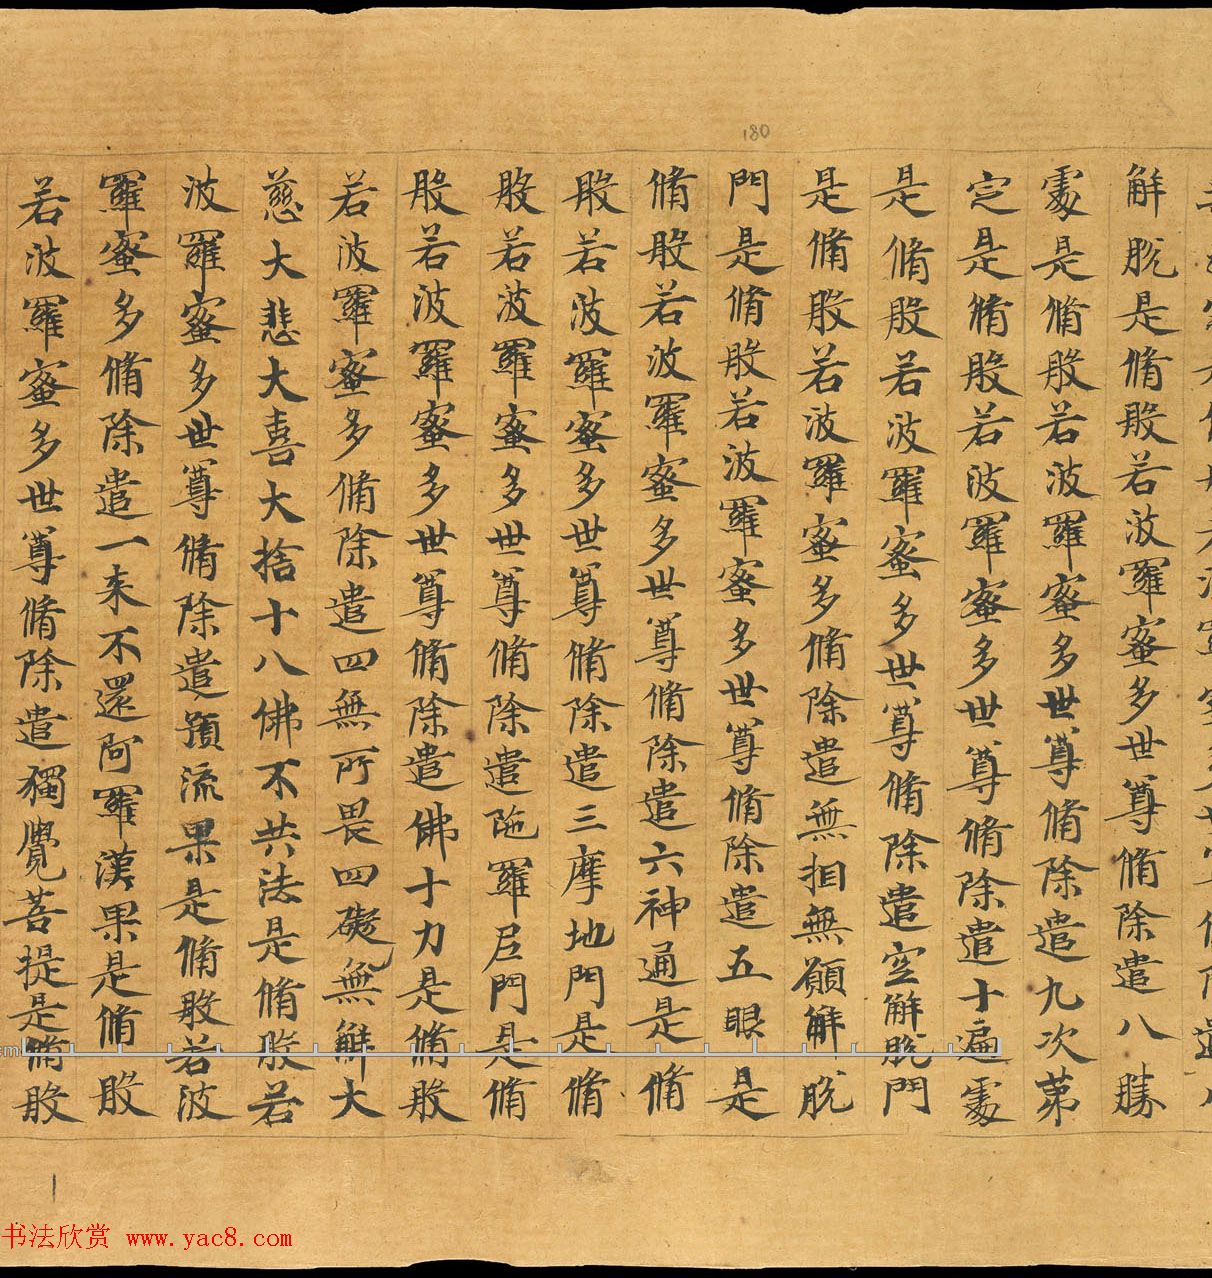 180
解脫是脩般若波羅蜜多世尊脩除遣八勝
處是脩般若波羅蜜多世尊脩除遣九次第
定是脩般若波羅蜜多世尊脩除遣十遍處
是脩般若波羅蜜多世尊脩除遣空解脫門
是脩般若波羅蜜多脩除遣無相無願解脫
門是脩般若波羅蜜多世尊脩除遣五眼是
脩般若波羅蜜多世尊脩除遣六神通是脩
般若波羅蜜多世尊脩除遣三摩地門是脩
般若波羅蜜多世尊脩除遣陁羅尼門是脩
般若波羅蜜多世尊脩除遣佛十力是脩般
若波羅蜜多脩除遣四無所畏四礙無解大
慈大悲大喜大捨十八佛不共法是脩般若
波羅蜜多世尊脩除遣預流果是脩般若波
羅蜜多脩除遣一来不還阿羅漢果是脩般
若波羅蜜多世尊脩除遣獨覺菩提是脩般
cm
书法欣赏 www.yac8.com